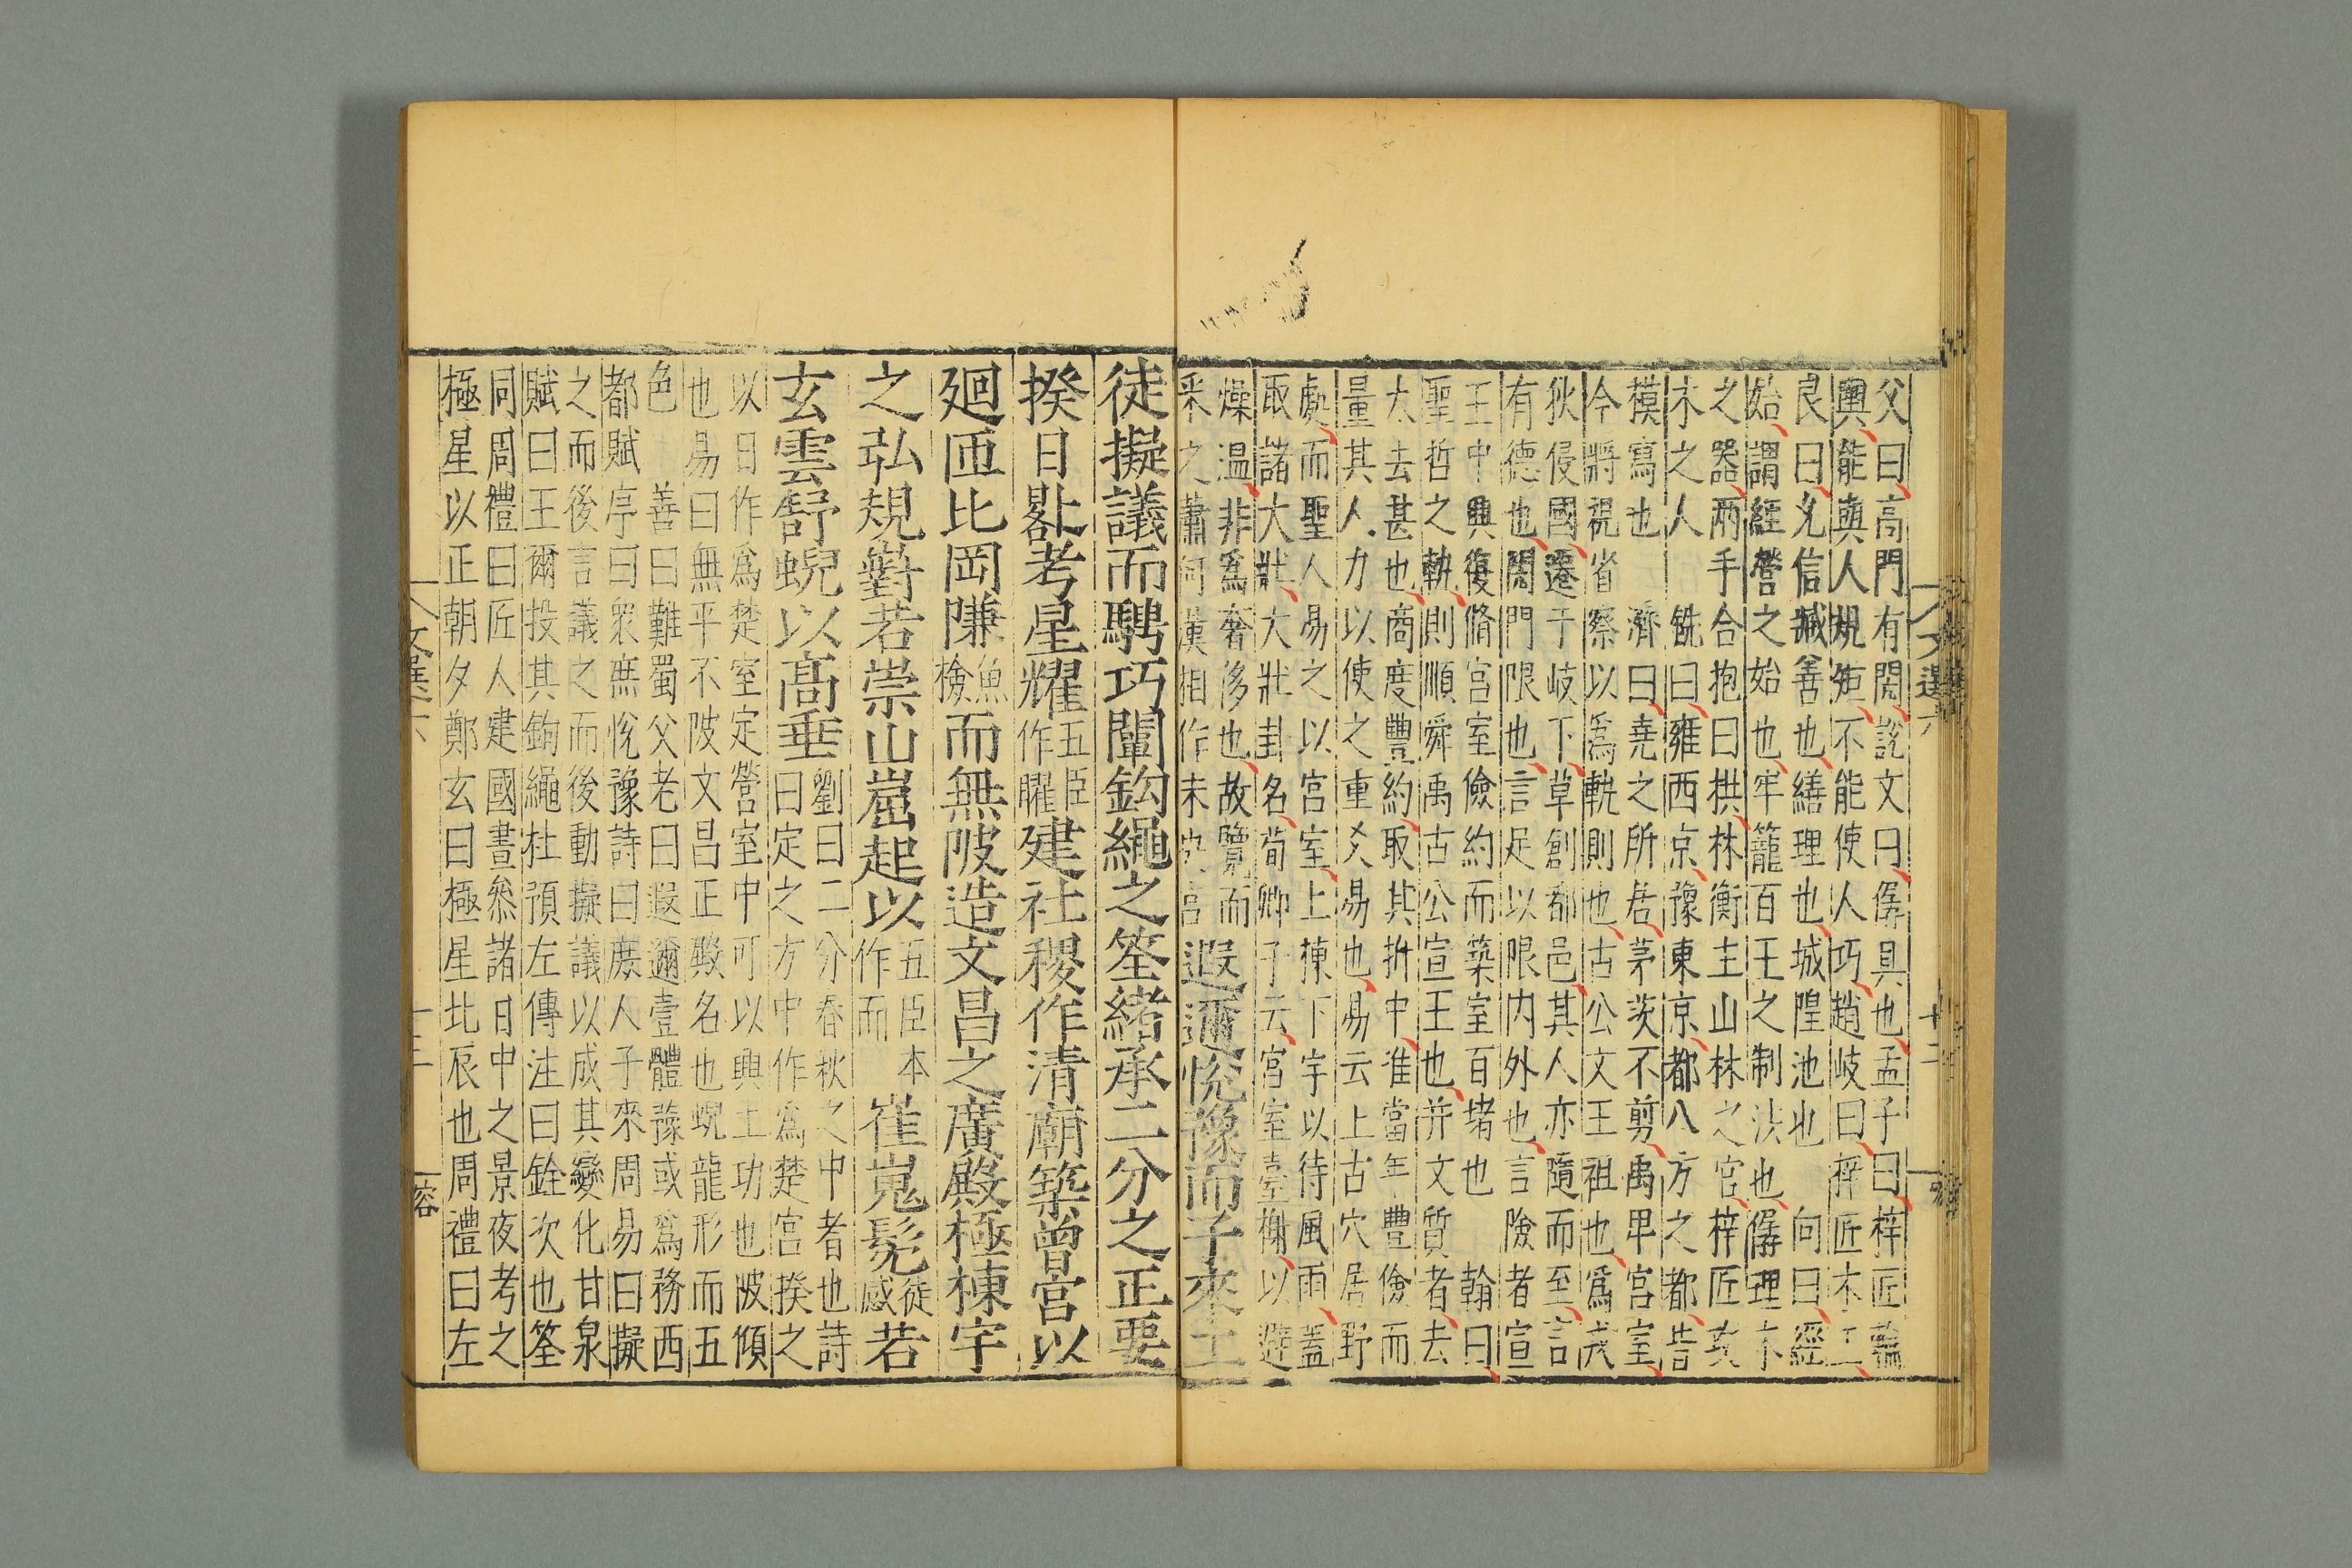 父曰高門有閌說文曰僝具也孟子曰梓匠輪
輿能與人規矩不能使人巧趙岐曰梓匠木工
艮曰允信臧善也繕理也城隍池也 向曰經
始謂經營之始也牢籠百王之制法也僝理木
之器兩手合抱曰拱林衡主山林之官梓匠攻
木之人 銑曰雍西京豫東京都八方之都告
模寫也 濟曰堯之所居茅茨不剪禹卑宮室
今將視省察以爲軌則也古公文王祖也爲戎
狄侵國遷于岐下草創都邑其人亦隨而至言
有德也閱門限也言足以限內外也言險者宣
王中興復脩宮室儉約而築室百堵也 翰曰
聖哲之軌則順舜禹古公宣王也并文質者去
太去甚也商度豐約取其折中准當年豐儉而
量其人力以使之重爻易也易云上古穴居野
處而聖人易之以宮室上棟下宇以待風雨蓋
取諸大壯大壯卦名荀卿子云宮室臺榭以避
燥温非爲奢侈也故覽而
采之蕭何漢相作未央宮
遐邇悅豫而子來工
徒擬議而騁巧闡鈎繩之筌緒承二分之正要
揆日晷考星耀
五臣
作曜
建社稷作清廟築曾宮以
廻匝比岡隒
魚
檢
而無陂造文昌之廣殿極棟宇
之弘規對若崇山崫起以
五臣本
作而
崔嵬髧
徒
感
若
玄雲舒蜺以高垂
劉曰二分春秋之中者也詩
曰定之方中作爲楚宮揆之
以日作爲楚室定營室中可以興土功也陂傾
也易曰無平不陂文昌正殿名也蜺龍形而五
色 善曰難蜀父老曰遐邇壹體豫或爲務西
都賦序曰衆庶悅豫詩曰庶人子來周易曰擬
之而後言議之而後動擬議以成其變化甘泉
賦曰王爾投其鉤繩杜預左傳注曰銓次也筌
同周禮曰匠人建國晝叅諸日中之景夜考之
極星以正朝夕鄭玄曰極星北辰也周禮曰左
文選六
十二
文選六
十三
容